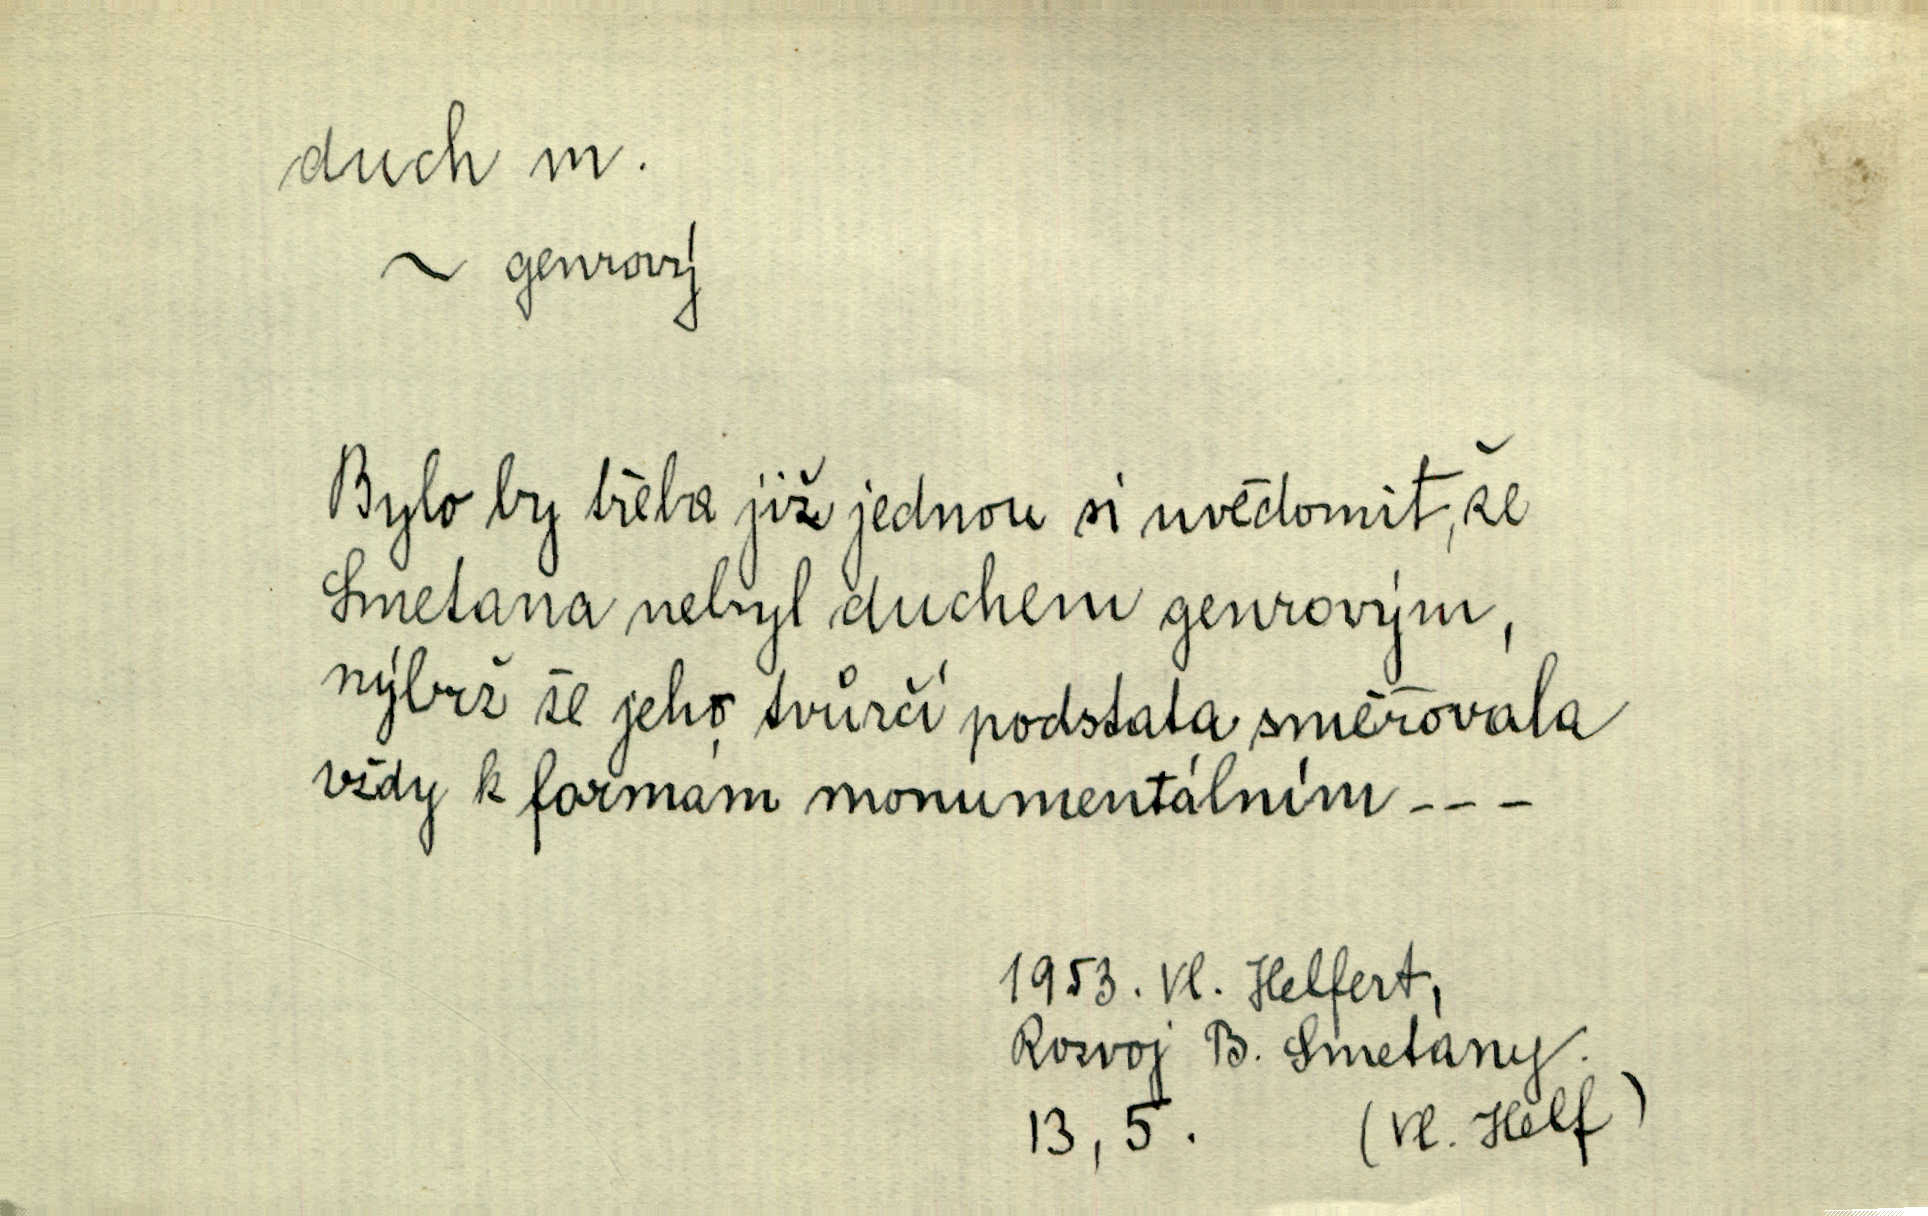 duch m.
~ genrový
Bylo by třeba již jednou si uvědomit, že
Smetana nebyl duchem genrovým,
nýbrž že jeho tvůrčí podstata směřovala
vždy k formám monumentálním ---
1953. Vl. Helfert,
Rozvoj B. Smetany.
13, 5.    (Vl. Helf)